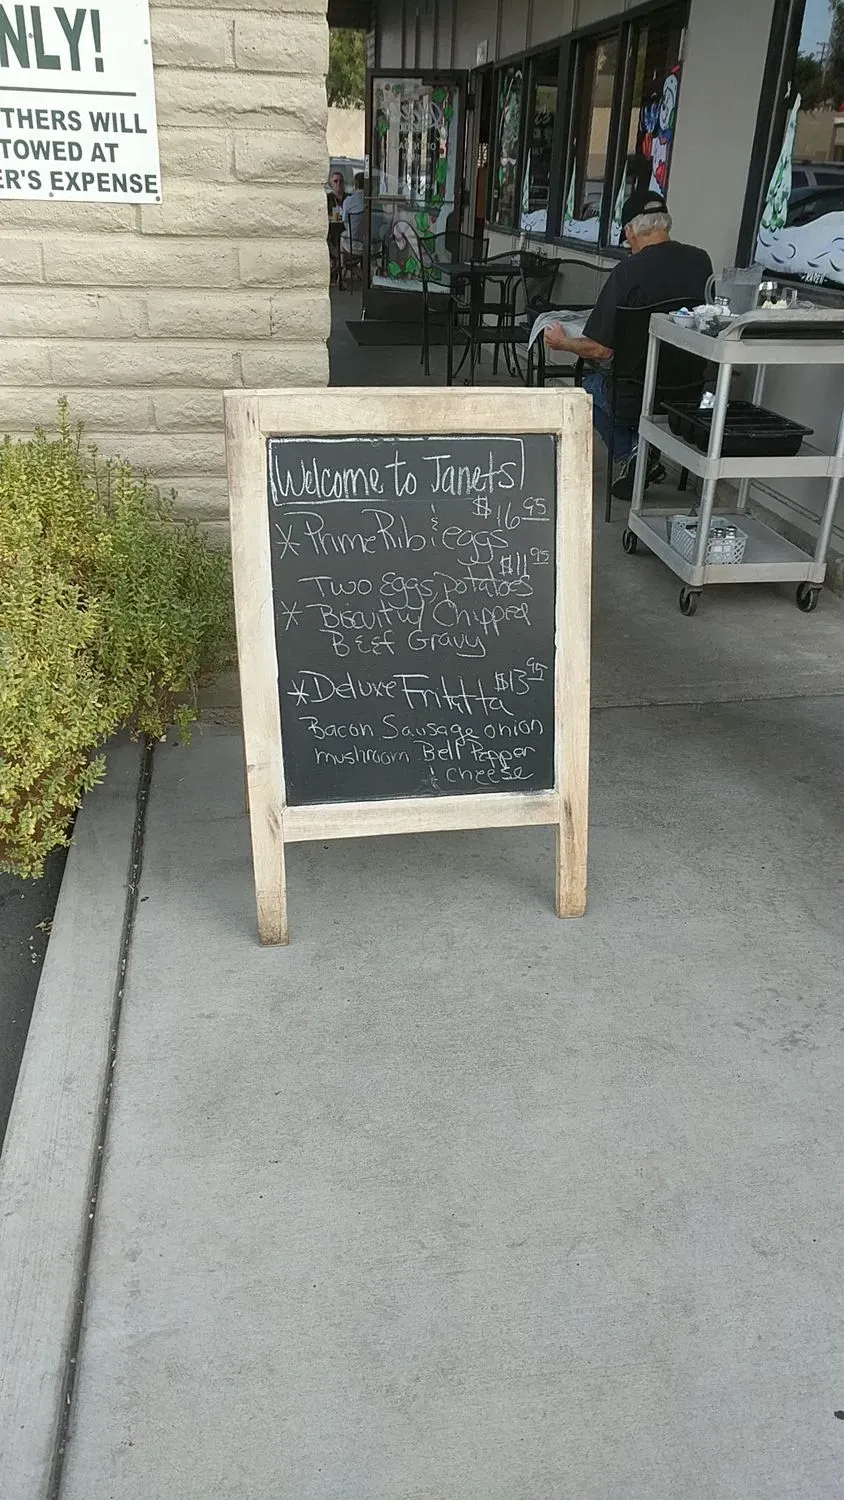 NLY!
THERS WILL
TOWED AT
ER'S EXPENSE
Welcome to Janets
$16.95
* Prime Rib & eggs
$11.95
Two Eggs, potatoes
* Biscuit w/ Chipped
Beef Gravy
* Deluxe Frittatta $13.95
Bacon Sausage onion
mushroom Bell Pepper
& cheese